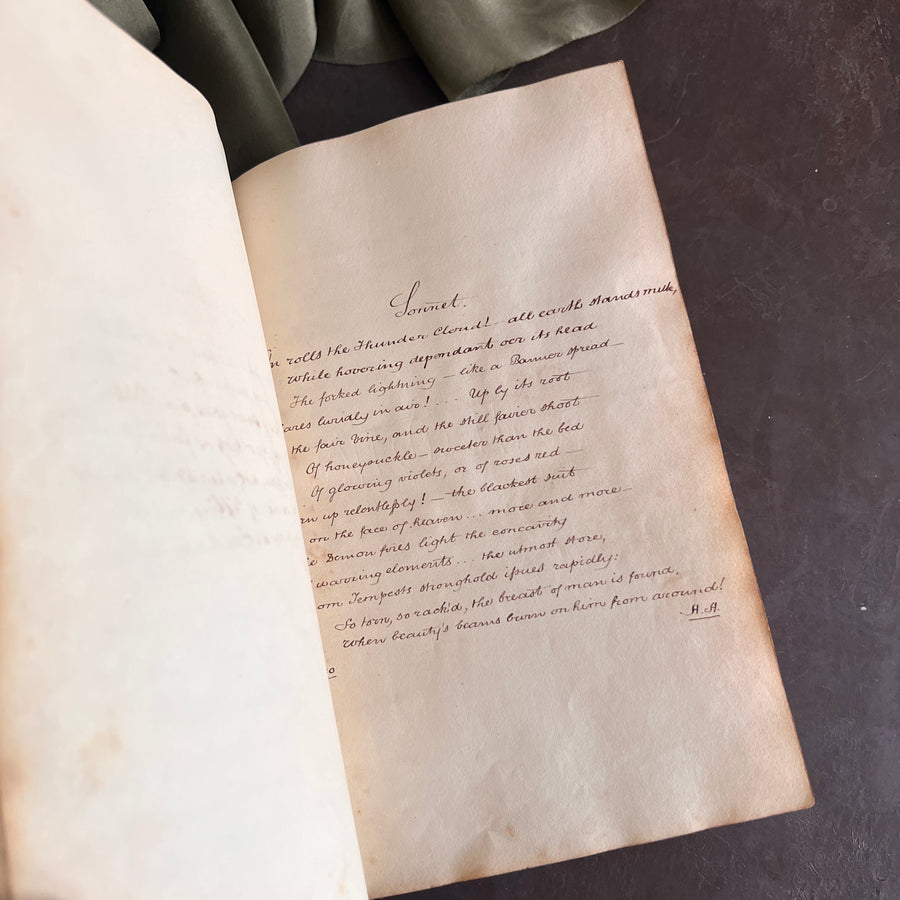 Sonnet.
n rolls the Thunder Cloud! — all earth stands mute,
While hovering dependant o'er its head
The forked lightning — like a Banner spread —
ares luridly in air! ... Up by its root
the fair Vine, and the still fairer shoot
Of honeysuckle — sweeter than the bed
Of glowing violets, or of roses red —
n up relentlessly! — the blackest suit
on the face of heaven ... more and more —
Demon fires light the concavity
warring elements ... the utmost store,
om Tempests stronghold issues rapidly:
So torn, so rack'd, the breast of man is found,
When beauty's beams burn on him from around!
A.A.